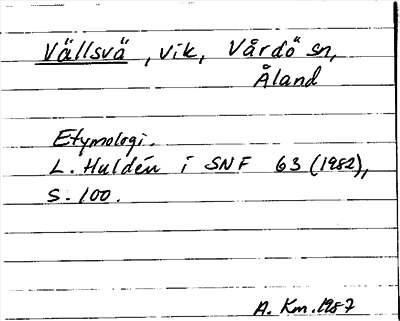 Vällsvä, vik, Vårdö sn,
Åland
Etymologi.
L. Huldén i SNF 63 (1982),
S. 100.
A. Km. 1987